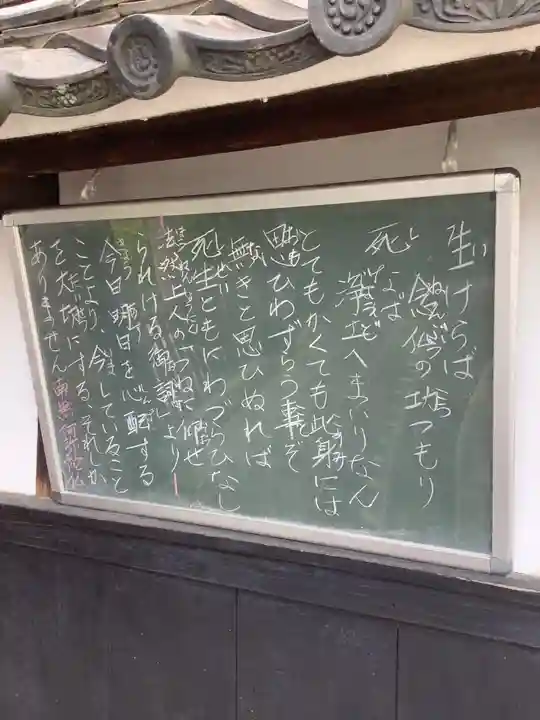 生けらば
念仏の功つもり
死なば
浄土へまいりなん
とてもかくても此身には
思ひわずらう事ぞ
無きと思ひぬれば
死生ともにわづらひなし
法然上人のつねに仰せ
られける御詞より
今日明日を心配する
ことより、今していること
を大切にする それしか
ありません 南無阿弥陀仏